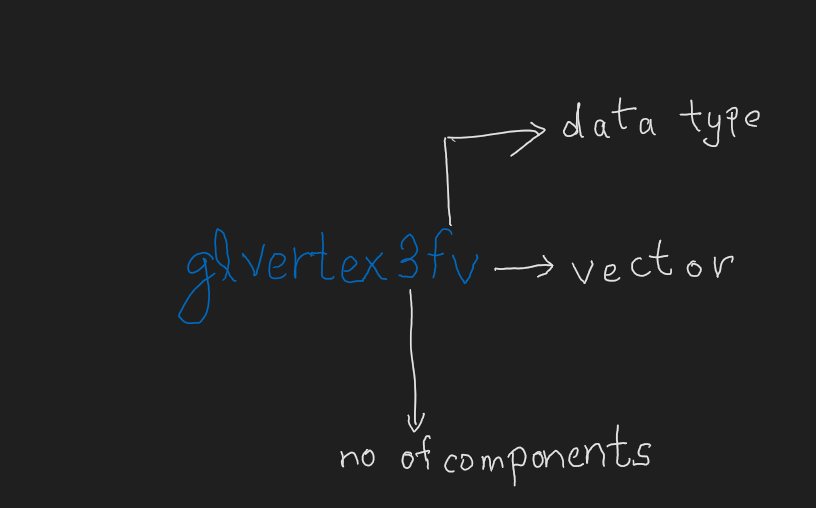 data type
glvertex3fv → vector
no of components